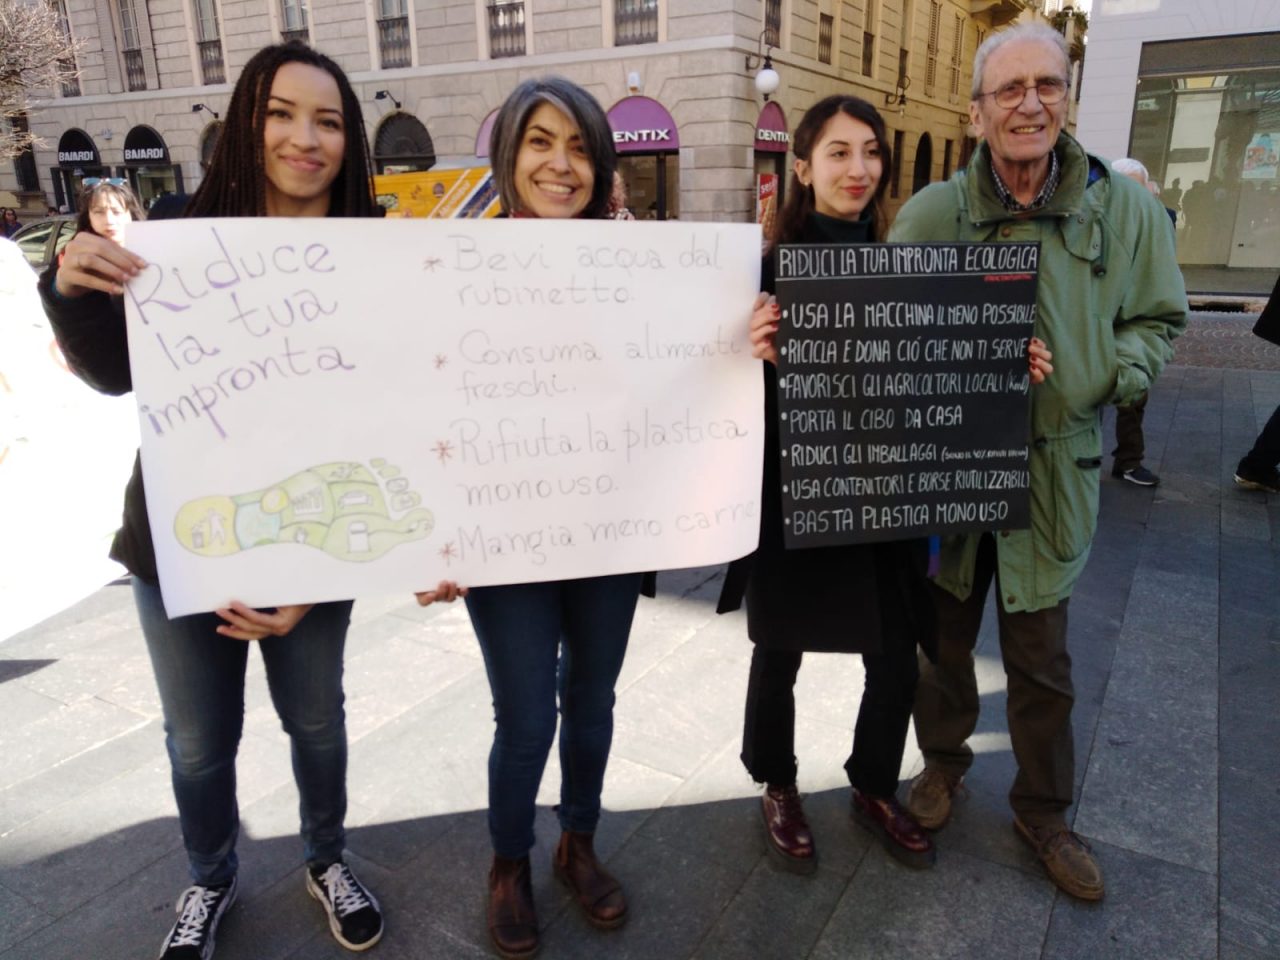 BAIARDI
BAIARDI
DENTIX
DENTIX
Riduce
la tua
impronta
* Bevi acqua dal
rubinetto.
* Consuma alimenti
freschi.
* Rifiuta la plastica
monouso.
* Mangia meno carne
RIDUCI LA TUA IMPRONTA ECOLOGICA
• USA LA MACCHINA IL MENO POSSIBILE
• RICICLA E DONA CIÓ CHE NON TI SERVE
• FAVORISCI GLI AGRICOLTORI LOCALI (Km0)
• PORTA IL CIBO DA CASA
• RIDUCI GLI IMBALLAGGI (SONO IL 40% RIFIUTI
• USA CONTENITORI E BORSE RIUTILIZZABILI
• BASTA PLASTICA MONOUSO